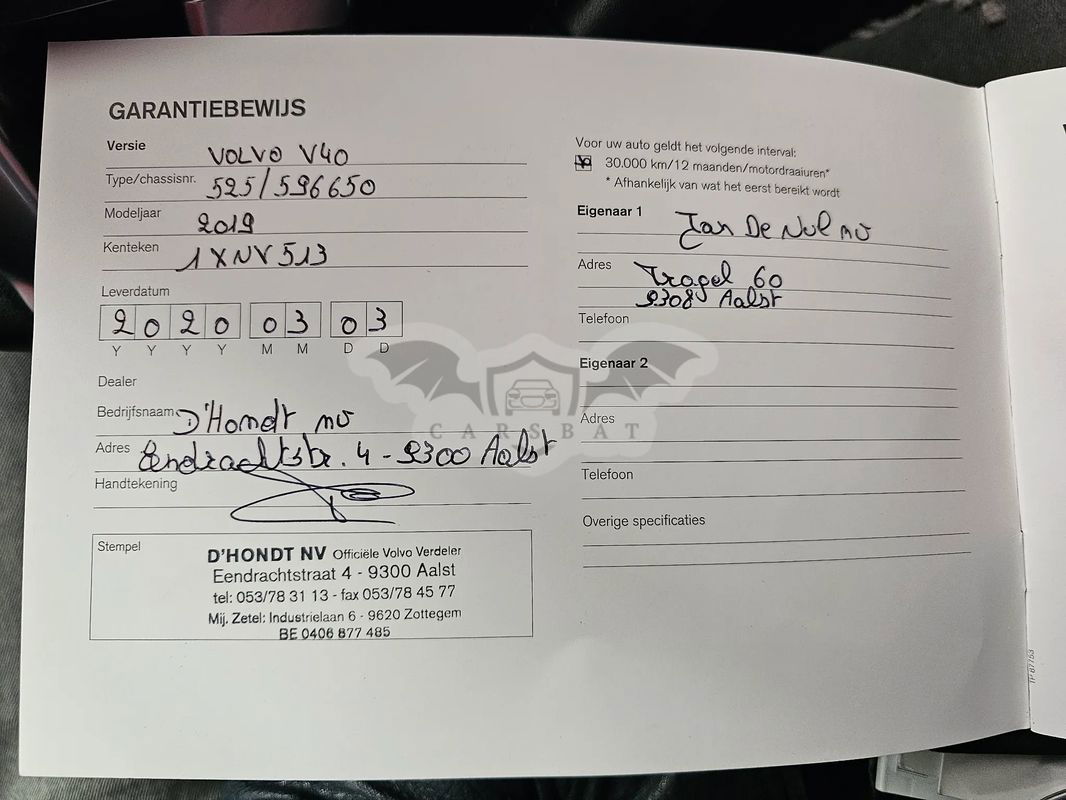 GARANTIEBEWIJS
Versie VOLVO V40
Type/chassisnr. 525/596650
Modeljaar 2019
Kenteken 1XNV513
Leverdatum
2020 03 03
Y Y Y Y M M D D
Dealer
Bedrijfsnaam D'Hondt nv
Adres Eendrachtstr. 4 - 9300 Aalst
Handtekening
Stempel
D'HONDT NV Officiële Volvo Verdeler
Eendrachtstraat 4 - 9300 Aalst
tel: 053/78 31 13 - fax 053/78 45 77
Mij. Zetel: Industrielaan 6 - 9620 Zottegem
BE 0406 877 485
Voor uw auto geldt het volgende interval:
30.000 km/12 maanden/motordraaiuren*
* Afhankelijk van wat het eerst bereikt wordt
Eigenaar 1 Jan De Nul nv
Adres Tragel 60
9308 Aalst
Telefoon
Eigenaar 2
Adres
Telefoon
Overige specificaties
CARSBAT
TP 87153